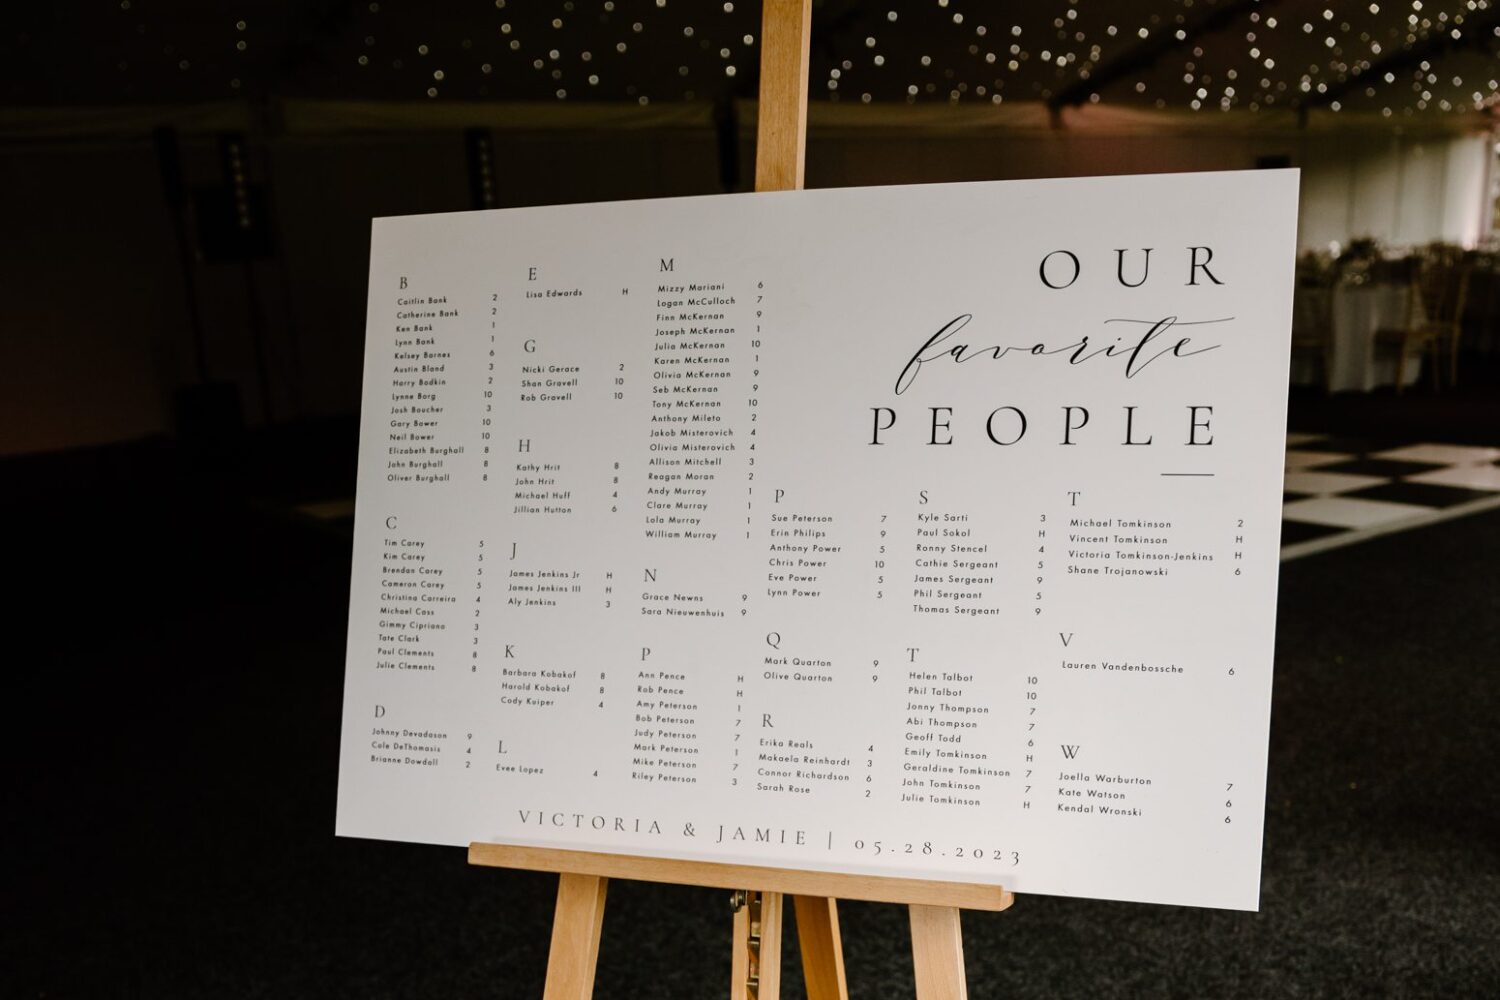 OUR
favorite
PEOPLE
B
Caitlin Bank 2
Catherine Bank 2
Ken Bank 1
Lynn Bank 1
Kelsey Barnes 6
Austin Bland 3
Harry Bodkin 2
Lynne Borg 10
Josh Boucher 3
Gary Bower 10
Neil Bower 10
Elizabeth Burghall 8
John Burghall 8
Oliver Burghall 8
C
Tim Carey 5
Kim Carey 5
Brendan Carey 5
Cameron Carey 5
Christina Carreira 4
Michael Cass 2
Gimmy Cipriano 3
Tate Clark 3
Paul Clements 8
Julie Clements 8
D
Johnny Devadason 9
Cole DeThomasis 4
Brianne Dowdall 2
E
Lisa Edwards H
G
Nicki Gerace 2
Shan Gravell 10
Rob Gravell 10
H
Kathy Hrit 8
John Hrit 8
Michael Huff 4
Jillian Hutton 6
J
James Jenkins Jr H
James Jenkins III H
Aly Jenkins 3
K
Barbara Kobakof 8
Harold Kobakof 8
Cody Kuiper 4
L
Evee Lopez 4
M
Mizzy Mariani 6
Logan McCulloch 7
Finn McKernan 9
Joseph McKernan 1
Julia McKernan 10
Karen McKernan 1
Olivia McKernan 9
Seb McKernan 9
Tony McKernan 10
Anthony Mileto 2
Jakob Misterovich 4
Olivia Misterovich 4
Allison Mitchell 3
Reagan Moran 2
Andy Murray 1
Clare Murray 1
Lola Murray 1
William Murray 1
N
Grace Newns 9
Sara Nieuwenhuis 9
P
Ann Pence H
Rob Pence H
Amy Peterson 1
Bob Peterson 7
Judy Peterson 7
Mark Peterson 1
Mike Peterson 7
Riley Peterson 3
P
Sue Peterson 7
Erin Philips 9
Anthony Power 5
Chris Power 10
Eve Power 5
Lynn Power 5
Q
Mark Quarton 9
Olive Quarton 9
R
Erika Reals 4
Makaela Reinhardt 3
Connor Richardson 6
Sarah Rose 2
S
Kyle Sarti 3
Paul Sokol H
Ronny Stencel 4
Cathie Sergeant 5
James Sergeant 9
Phil Sergeant 5
Thomas Sergeant 9
T
Helen Talbot 10
Phil Talbot 10
Jonny Thompson 7
Abi Thompson 7
Geoff Todd 6
Emily Tomkinson H
Geraldine Tomkinson 7
John Tomkinson 7
Julie Tomkinson H
T
Michael Tomkinson 2
Vincent Tomkinson H
Victoria Tomkinson-Jenkins H
Shane Trojanowski 6
V
Lauren Vandenbossche 6
W
Joella Warburton 7
Kate Watson 6
Kendal Wronski 6
VICTORIA & JAMIE | 05.28.2023